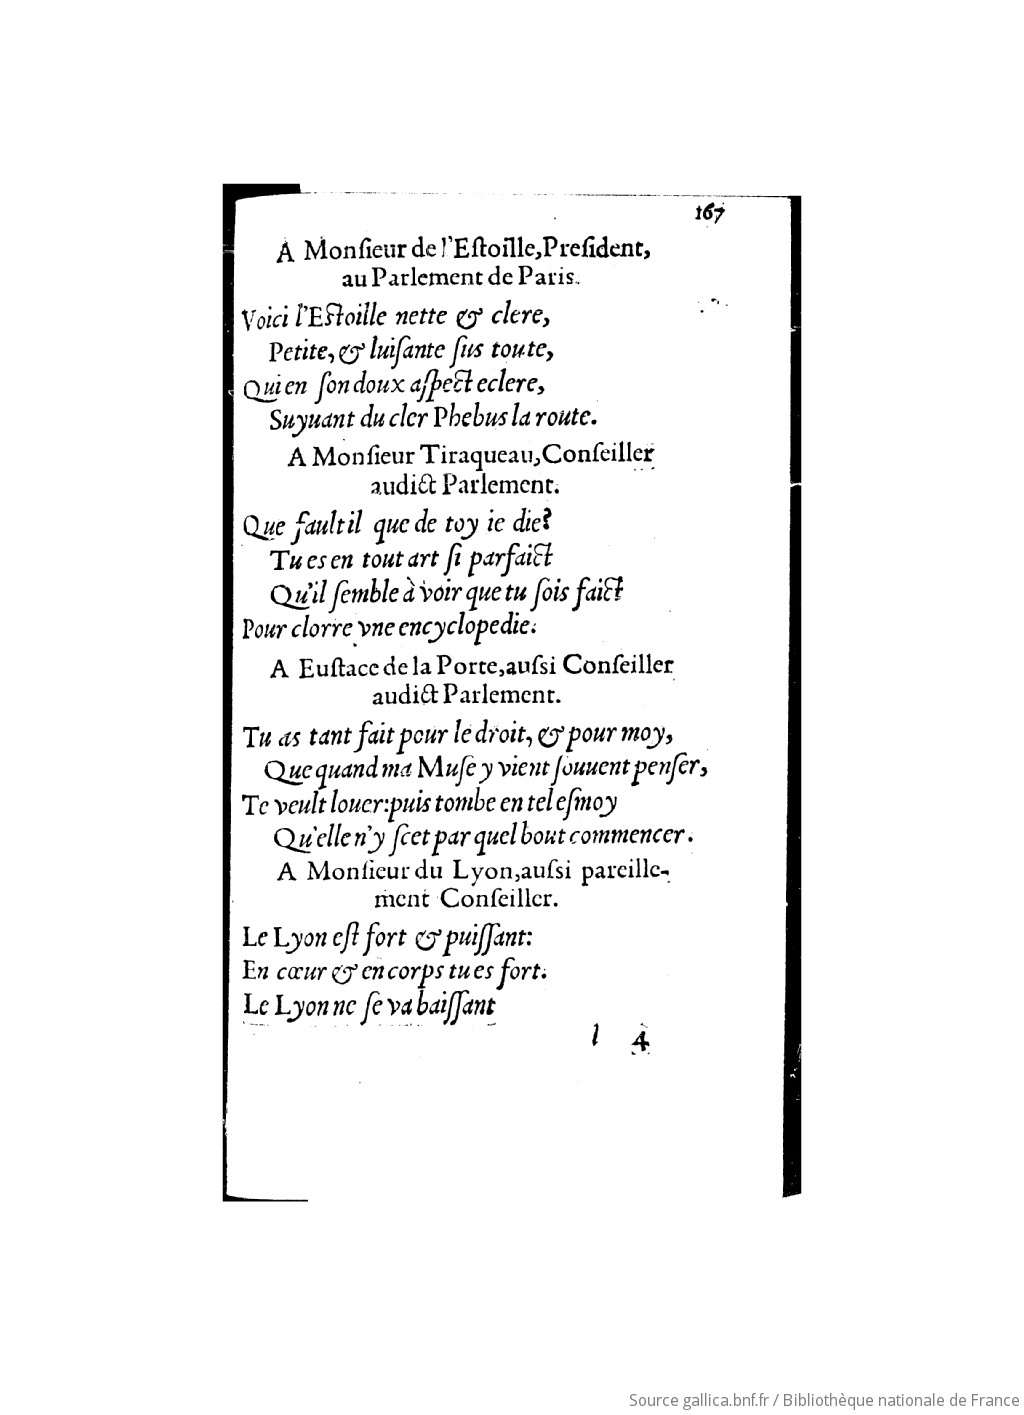 167
A Monſieur de l'Eſtoille, Preſident,
au Parlement de Paris.
Voici l'Eſtoille nette & clere,
Petite, & luiſante ſus toute,
Qui en ſon doux aſpect eclere,
Suyuant du cler Phebus la route.
A Monſieur Tiraqueau, Conſeiller
audict Parlement.
Que fault il que de toy ie die?
Tu es en tout art ſi parfaict
Qu'il ſemble à voir que tu ſois faict
Pour clorre vne encyclopedie.
A Euſtace de la Porte, auſsi Conſeiller
audict Parlement.
Tu as tant fait pour le droit, & pour moy,
Que quand ma Muſe y vient ſouuent penſer,
Te veult louer: puis tombe en tel eſmoy
Qu'elle n'y ſcet par quel bout commencer.
A Monſieur du Lyon, auſsi pareille-
ment Conſeiller.
Le Lyon eſt fort & puiſſant:
En cœur & en corps tu es fort.
Le Lyon ne ſe va baiſſant
l 4
Source gallica.bnf.fr / Bibliothèque nationale de France